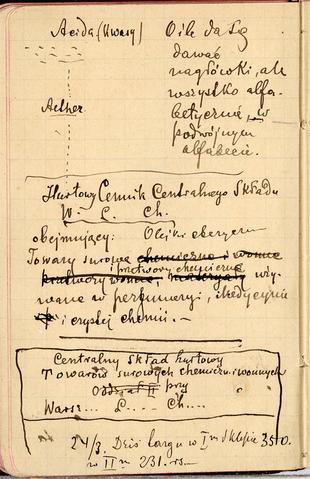 Acida (Kwasy)
O ile da się
dawać
nagłówki, ale
wszystko alfa-
betycznie, w
podwójnym
alfabecie.
Aether
Hurtowy Cennik Centralnego Składu
W. L. Ch.
obejmujący: Olejki eteryczne
Towary surowe chemiczne i wonne
przetwory chemiczne
przetwory wonne, materyały uży-
wane w perfumeryi, medycynie
i czystej chemii.
Centralny skład hurtowy
Towarów surowych chemiczn. i wonnych
Oddział II przy
Warsz... L... Ch...
24/3. Dziś targu w I m Sklepie 350.
w II m 231. rs.